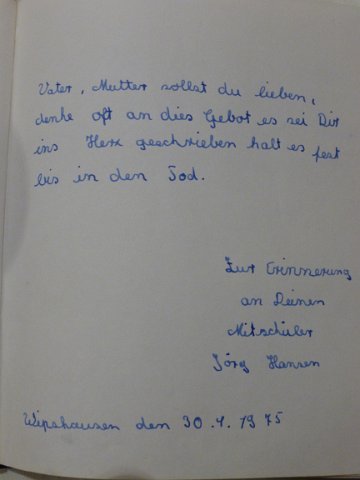 Vater, Mutter sollst du lieben,
denke oft an dies Gebot es sei Dir
ins Herz geschrieben halt es fest
bis in den Tod.
Zur Erinnerung
an Deinen
Mitschüler
Jörg Hansen
Wipshausen den 30.4.1975